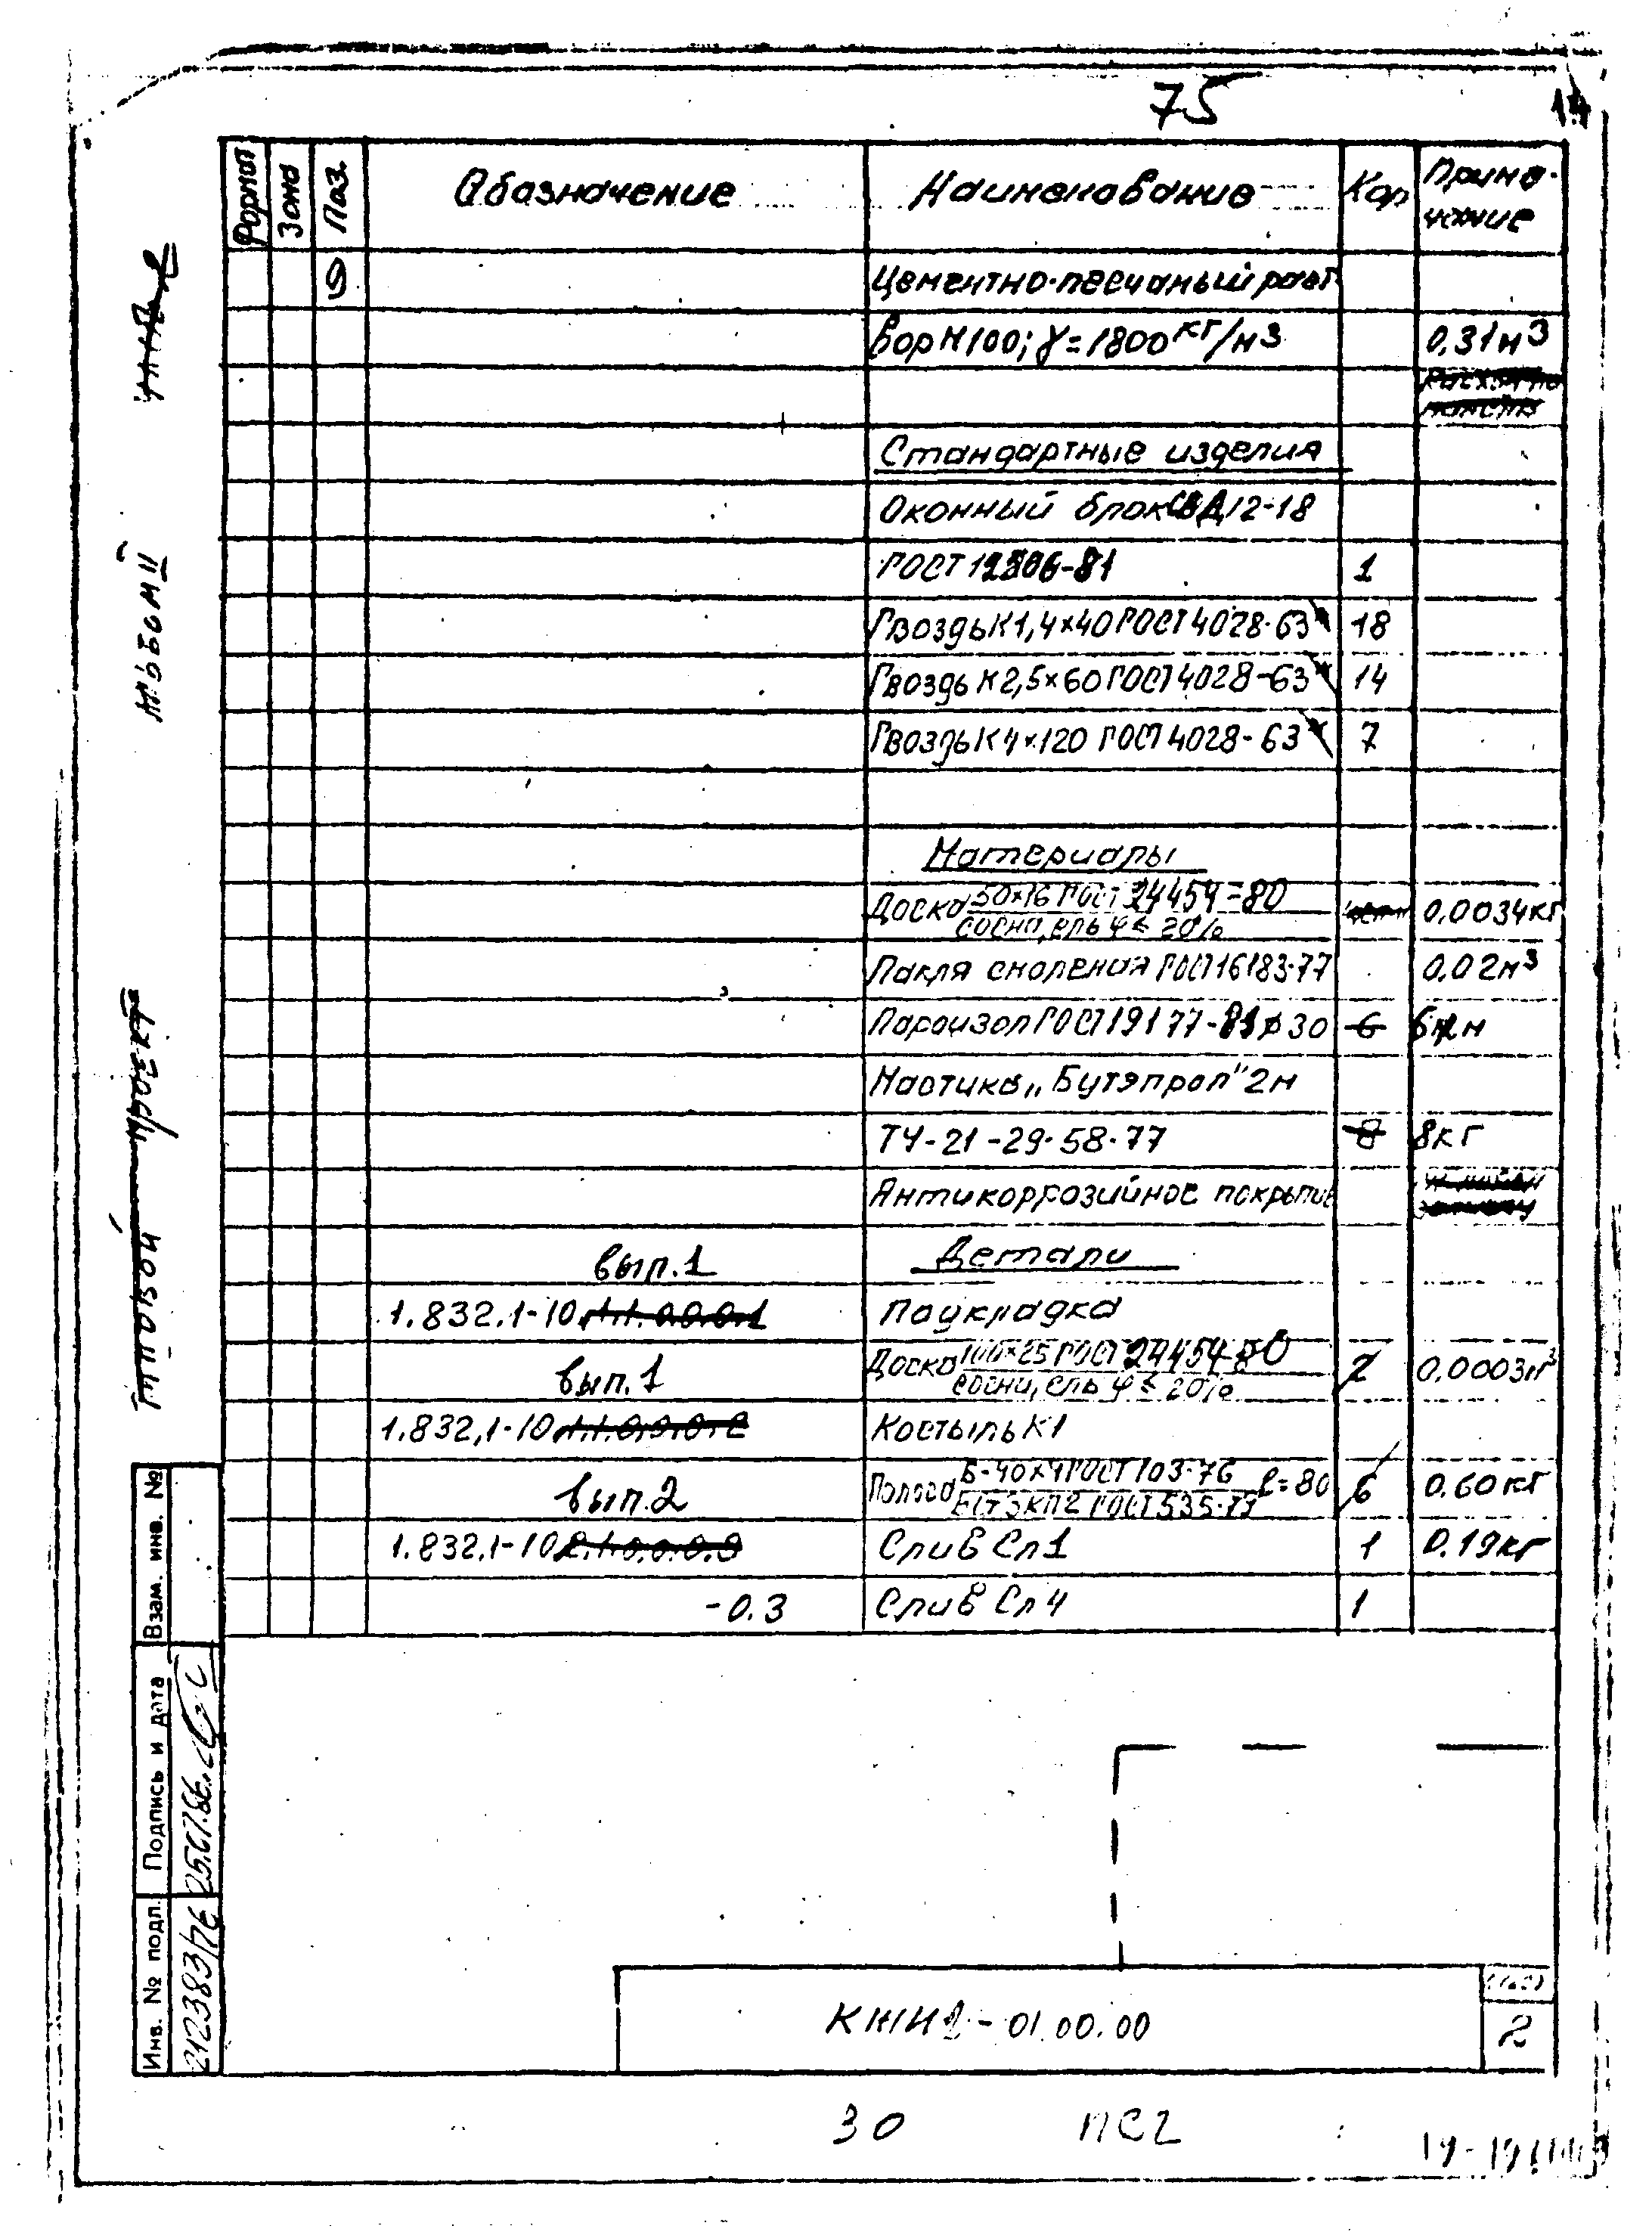 75
Формат Зона Поз. Обозначение Наименование Кол Приме-
чание
9 Цементно-песчаный раст
вор М100; γ=1800 кг/м3 0,31м3
Стандартные изделия
Оконный блок 12-18
ГОСТ 12506-81 1
Гвоздь К1,4×40 ГОСТ 4028-63 18
Гвоздь К2,5×60 ГОСТ 4028-63 14
Гвоздь К4×120 ГОСТ 4028-63 7
Материалы
Доска 50×16 ГОСТ 24454-80 0,0034кг
сосна, ель φ≤20%
Пакля смоленая ГОСТ 16183-77 0,02м3
Пароизол ГОСТ 19177-81 ф30 6 м
Мастика „Бутэпрол" 2м
ТУ-21-29-58-77 8 8кг
Антикоррозийное покрытие
вып.1 Детали
1.832.1-10 Подкладка
вып.1 Доска 100×25 ГОСТ 24454-80 2 0,0003м3
сосна, ель φ≤20%
1.832,1-10 Костыль К1
вып.2 Полоса Б-40×4 ГОСТ 103-76 ℓ=80 6 0.60кг
ВСт3кп2 ГОСТ 535-79
1.832.1-10 Слив Сл1 1 0.19кг
-0.3 Слив Сл4 1
Типовой проект
Альбом II
Взам. инв. №
Подпись и дата
25.07.86
Инв. № подл.
212383/76
КЖИ2-01.00.00
Лист
2
30 ПС2